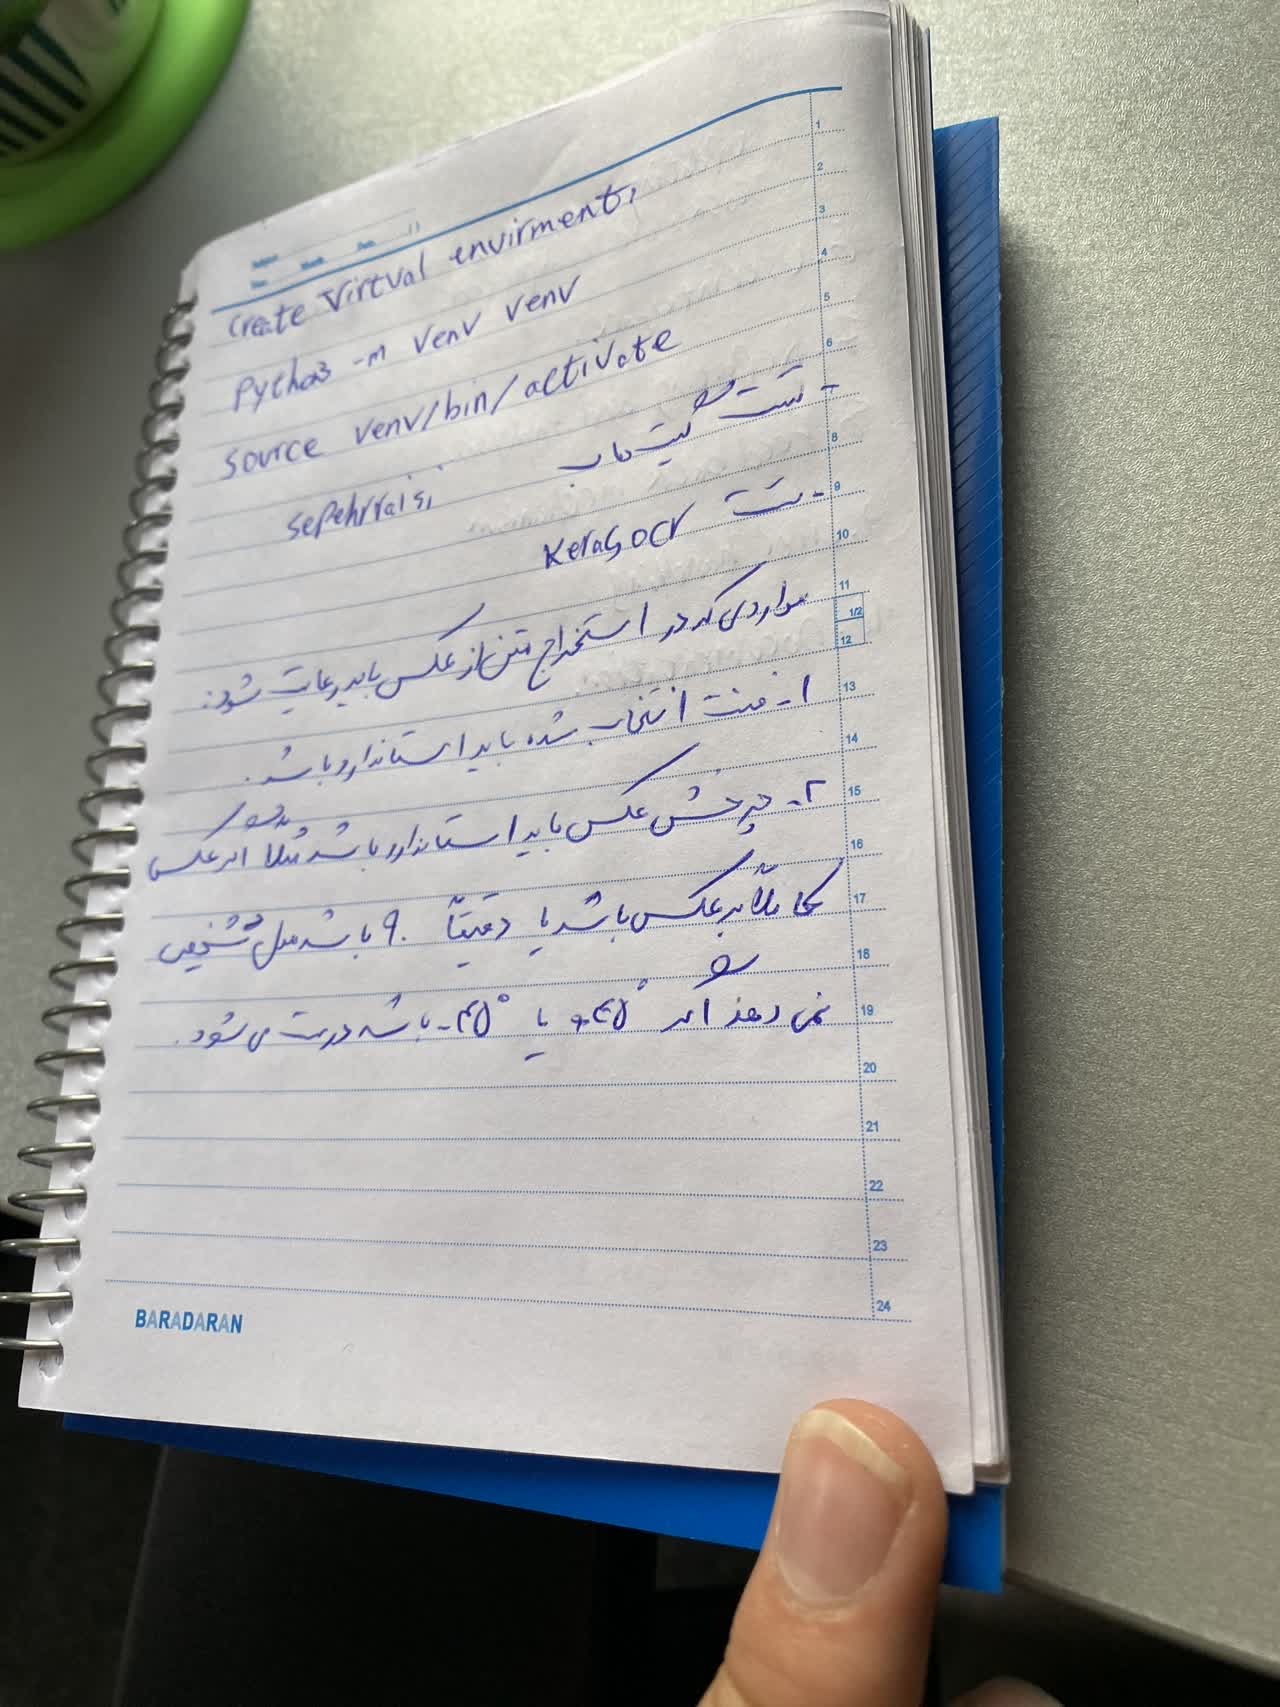 Create Virtual envirment,
Python3 -m venv venv
source venv/bin/activate
- تست گیت هاب
sepehrraisi
- تست KerasOCR
مواردی که در استخراج متن از عکس باید رعایت شود:
۱- فونت انتخاب شده باید استاندارد باشد.
۲- چرخش عکس باید استاندارد باشد مثلاً اگر عکس
کاملاً برعکس باشد یا دقیقاً ۹۰ باشد مدل تشخیص
نمی دهد اگر ۴۵° یا -۴۵° باشد درست می شود.
1
2
3
4
5
6
8
9
10
11
1/2
12
13
14
15
16
17
18
19
20
21
22
23
24
BARADARAN